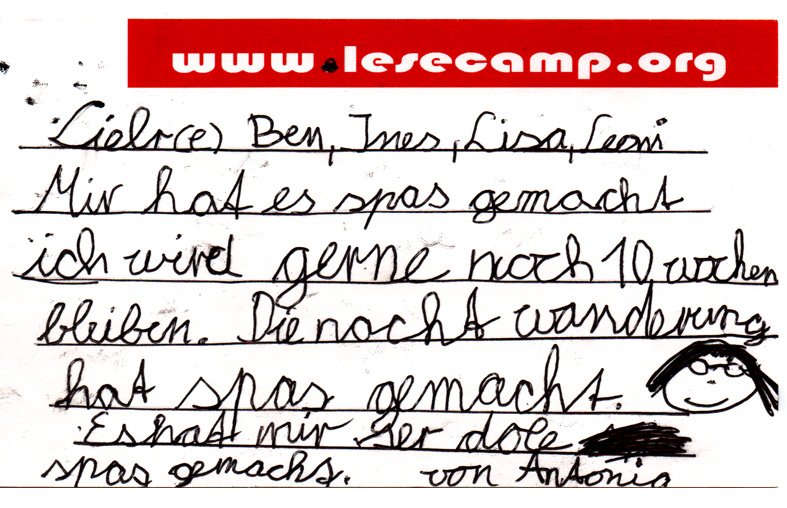 www.lesecamp.org
Liebr(e) Ben, Ines, Lisa, Leoni
Mir hat es spas gemacht
ich wird gerne noch 10 wochen
bleiben. Die nacht wanderung
hat spas gemacht.
Es hat mir ser dole
spas gemacht. von Antonia